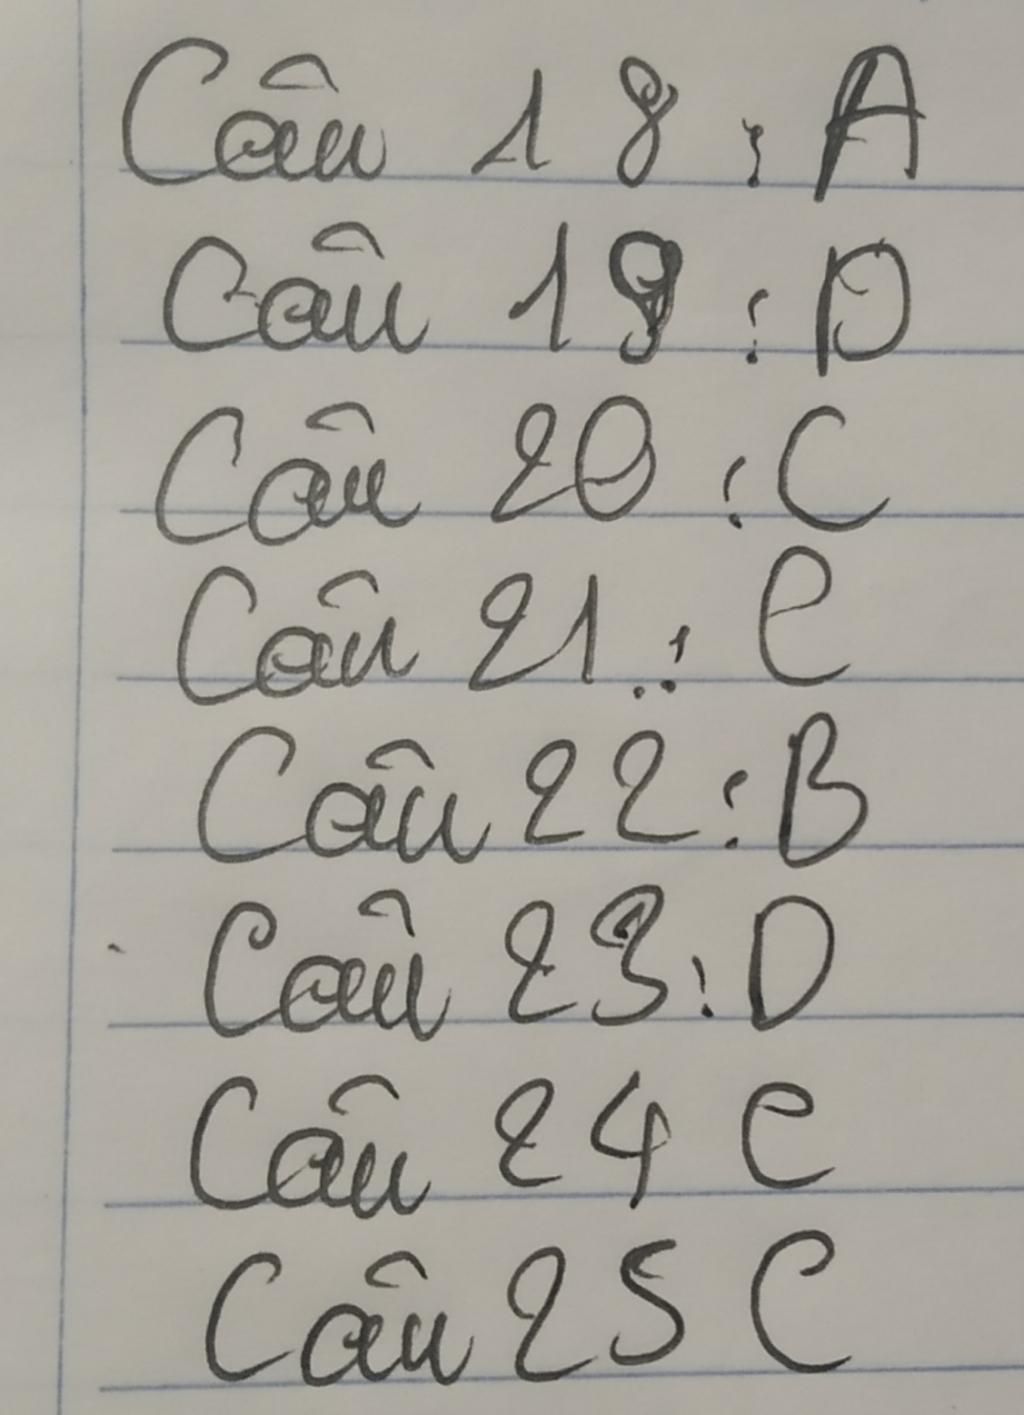 Câu 18 : A
Câu 19 : D
Câu 20 : C
Câu 21 : C
Câu 22 : B
Câu 23 : D
Câu 24 C
Câu 25 C